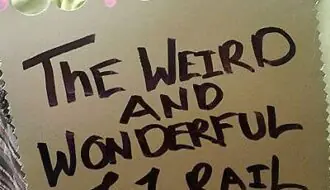 The WEIRD
AND
WONDERFUL
RAIL